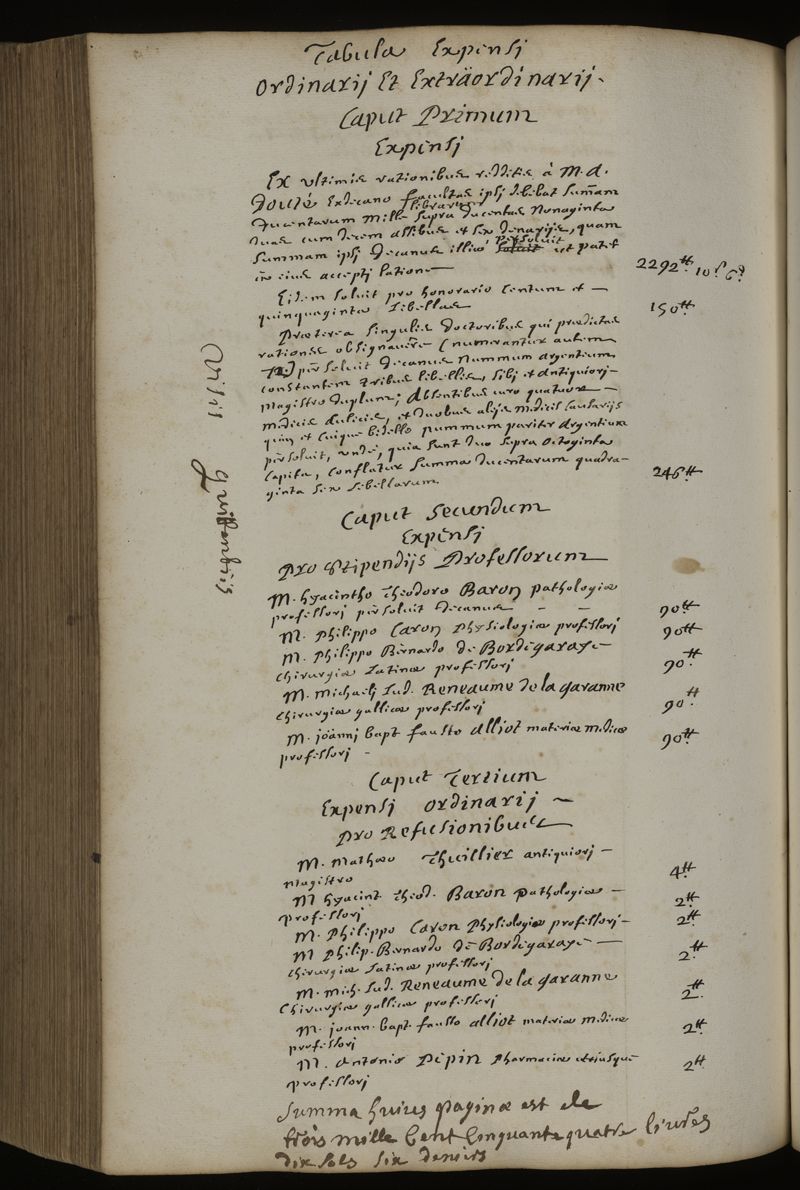 Tabula Expensi
Ordinarij Et Extraordinarij.
Caput Primum
Expensi
Ex ultimis rationibus redditis à M. d.
Douté Exdecano facultas ipsi debebat summam
librarum
Ducentarum Mille supra ducentas Nonaginta
duas cum decem assibus et sex denarijs, quam
persoluit
summam ipsi Decanus illius ut patet
in eius accepti ratione
2292tt 10s 6d
Eidem soluit pro honorario Centum et
quinquaginta libellas
150tt
Praeterea singulis doctoribus qui praedictas
rationes obsignavere (numerantur autem
72) persoluit Decanus Nummum argenteum
constantem tribus libellis, sibi et antiquiori
Magistro duplum; absentibus vero quatuor
medicis aulicis, et duobus alijs medicis
quin et cuique bidello nummum pariter argenteum
persoluit, unde, quia sunt duo supra octoginta
capita, conflatur summa ducentarum quadra-
ginta sex libellarum
246tt
Caput Secundum
Expensi
Pro Stipendijs Professorum
M. hyacintho Theodoro Baron pathologiae
professori persoluit decanus
90tt
M. Philippo Caron Physiologiae professori
90tt
M. Philippo Bernardo de Bordegaraye
chirurgiae latinae professori
90tt
M. Michaeli Lud. Reneaume de la garanne
chirurgiae gallicae professori
90tt
M. joanni bapt. fausto alliot materiae medicae
professori
90tt
Caput Tertium
Expensi ordinarij
pro Refusionibus
M. Mathaeo Thuillier antiquiori
magistro
4tt
M hyacint. Theod. Baron pathologiae
professori
2tt
M. Philippo Caron Physiologiae professori
2tt
M Philip. Bernardo de Bordegaraye
chirurgiae latinae professori
2tt
M. Mich. Lud. Reneaume de la garanne
Chirurgiae gallicae professori
2tt
M. joann. bapt. fausto alliot materiae medicae
professori
2tt
M. Antonio Pepin Pharmaciae utriusque
professori
2tt
Summa huius paginae est de
trois mille Cent Cinquante quatre livres
dix sols six deniers